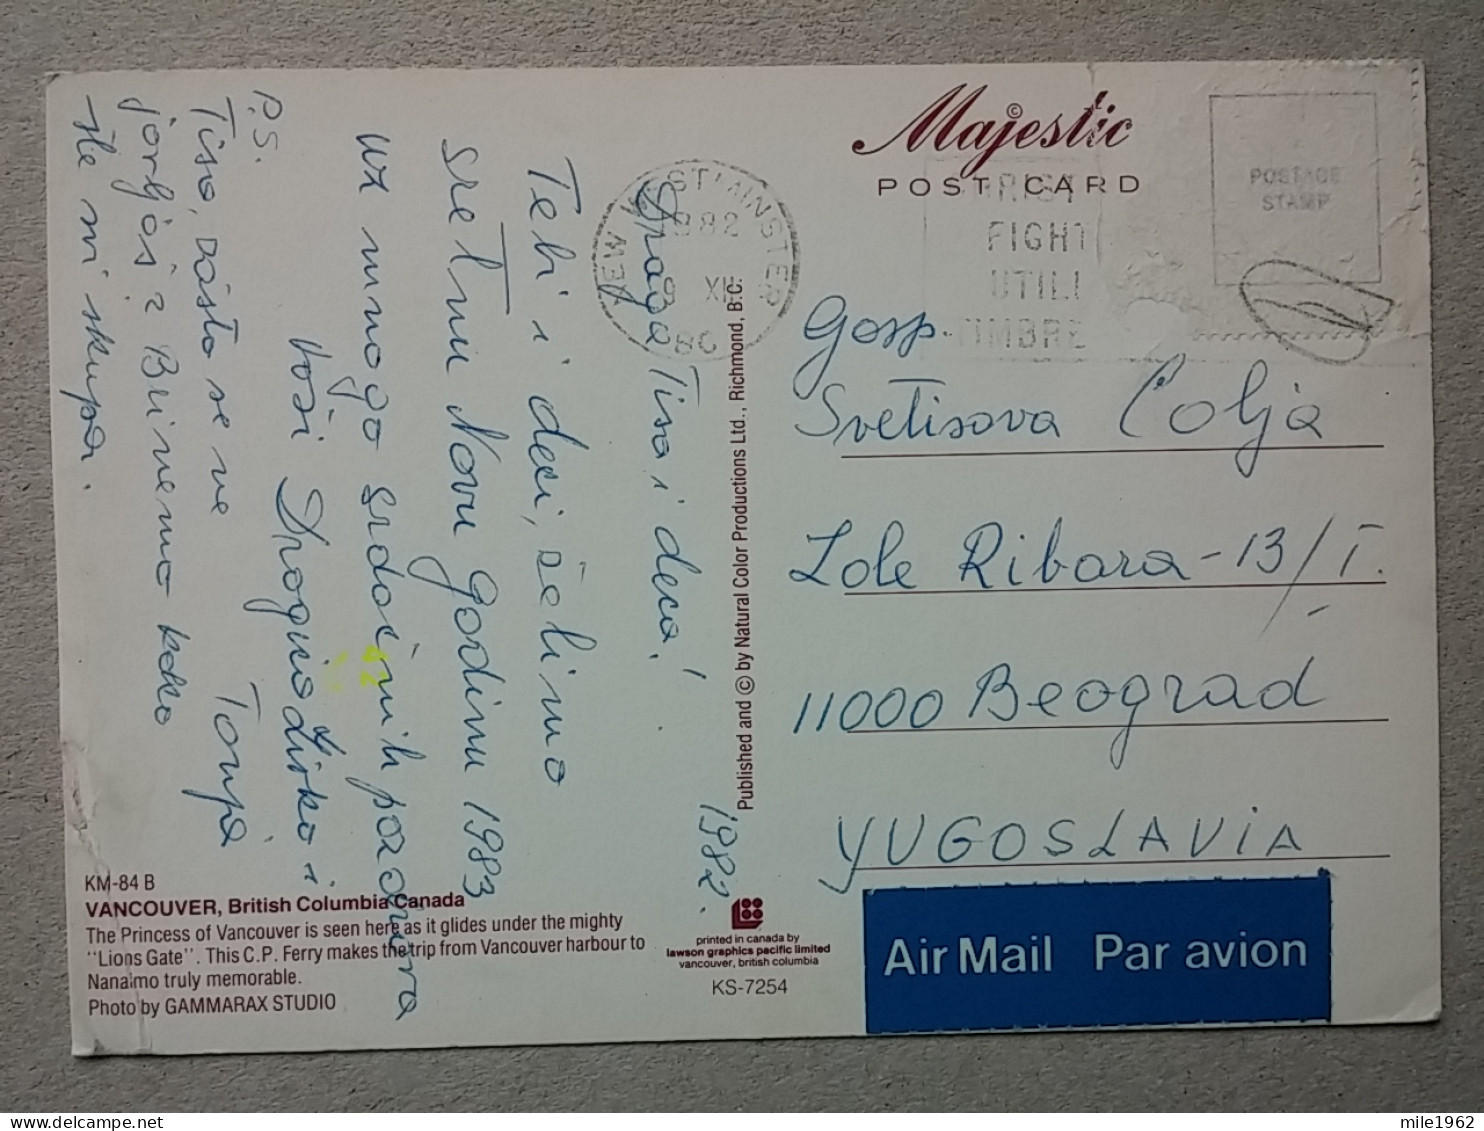 Majestic
POST CARD
POSTAGE
STAMP
NEW WESTMINSTER
1982
9 XII
BC
FIGHT
UTILI
TIMBRE
Gosp.
Svetisova Čolja
Lole Ribara - 13/I.
11000 Beograd
YUGOSLAVIA
Air Mail Par avion
Draga Tiso i deco!
1982.
Tebi i deci, želimo
sretnu Novu godinu 1983
uz mnogo srdačnih pozdrava
Vaši Dragica Živko i
Tonya
P.S.
Tiso, zašto se ne
javljaš? Brinemo kako
ste svi skupa.
Published and © by Natural Color Productions Ltd., Richmond, B.C.
KM-84 B
VANCOUVER, British Columbia Canada
The Princess of Vancouver is seen here as it glides under the mighty
"Lions Gate". This C.P. Ferry makes the trip from Vancouver harbour to
Nanaimo truly memorable.
Photo by GAMMARAX STUDIO
printed in canada by
lawson graphics pacific limited
vancouver, british columbia
KS-7254
mile1962